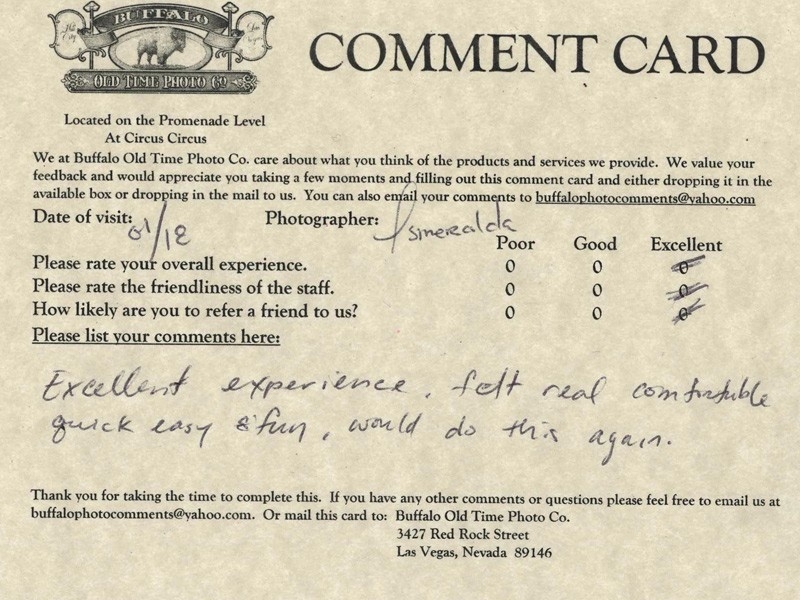 BUFFALO
OLD TIME PHOTO Co
COMMENT CARD
Located on the Promenade Level
At Circus Circus
We at Buffalo Old Time Photo Co. care about what you think of the products and services we provide. We value your
feedback and would appreciate you taking a few moments and filling out this comment card and either dropping it in the
available box or dropping in the mail to us. You can also email your comments to buffalophotocomments@yahoo.com
Date of visit: 01/18 Photographer: Esmeralda
Poor Good Excellent
Please rate your overall experience. 0 0 0
Please rate the friendliness of the staff. 0 0 0
How likely are you to refer a friend to us? 0 0 0
Please list your comments here:
Excellent experience, felt real comfortable
quick easy & fun, would do this again.
Thank you for taking the time to complete this. If you have any other comments or questions please feel free to email us at
buffalophotocomments@yahoo.com. Or mail this card to: Buffalo Old Time Photo Co.
3427 Red Rock Street
Las Vegas, Nevada 89146